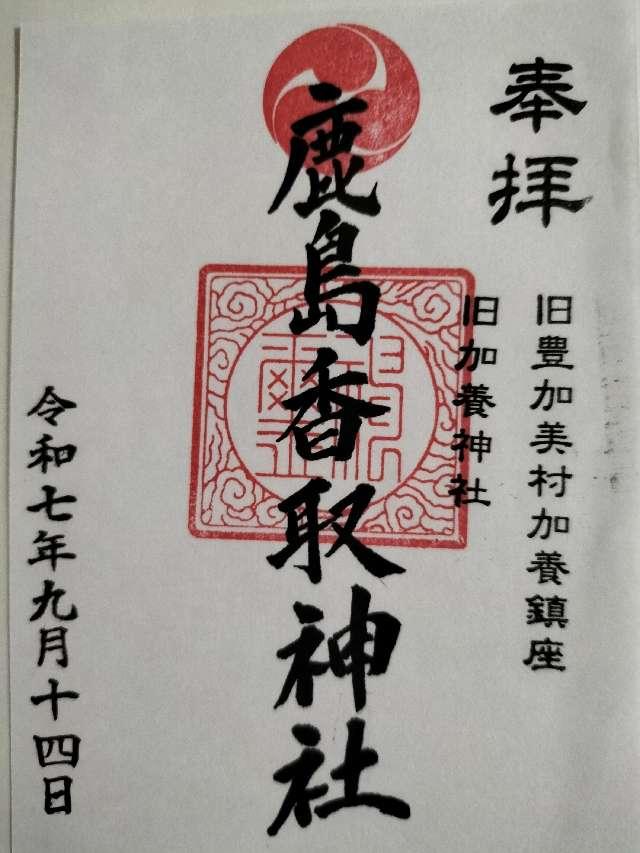 奉拝
旧豊加美村加養鎮座
旧加養神社
鹿島香取神社
令和七年九月十四日